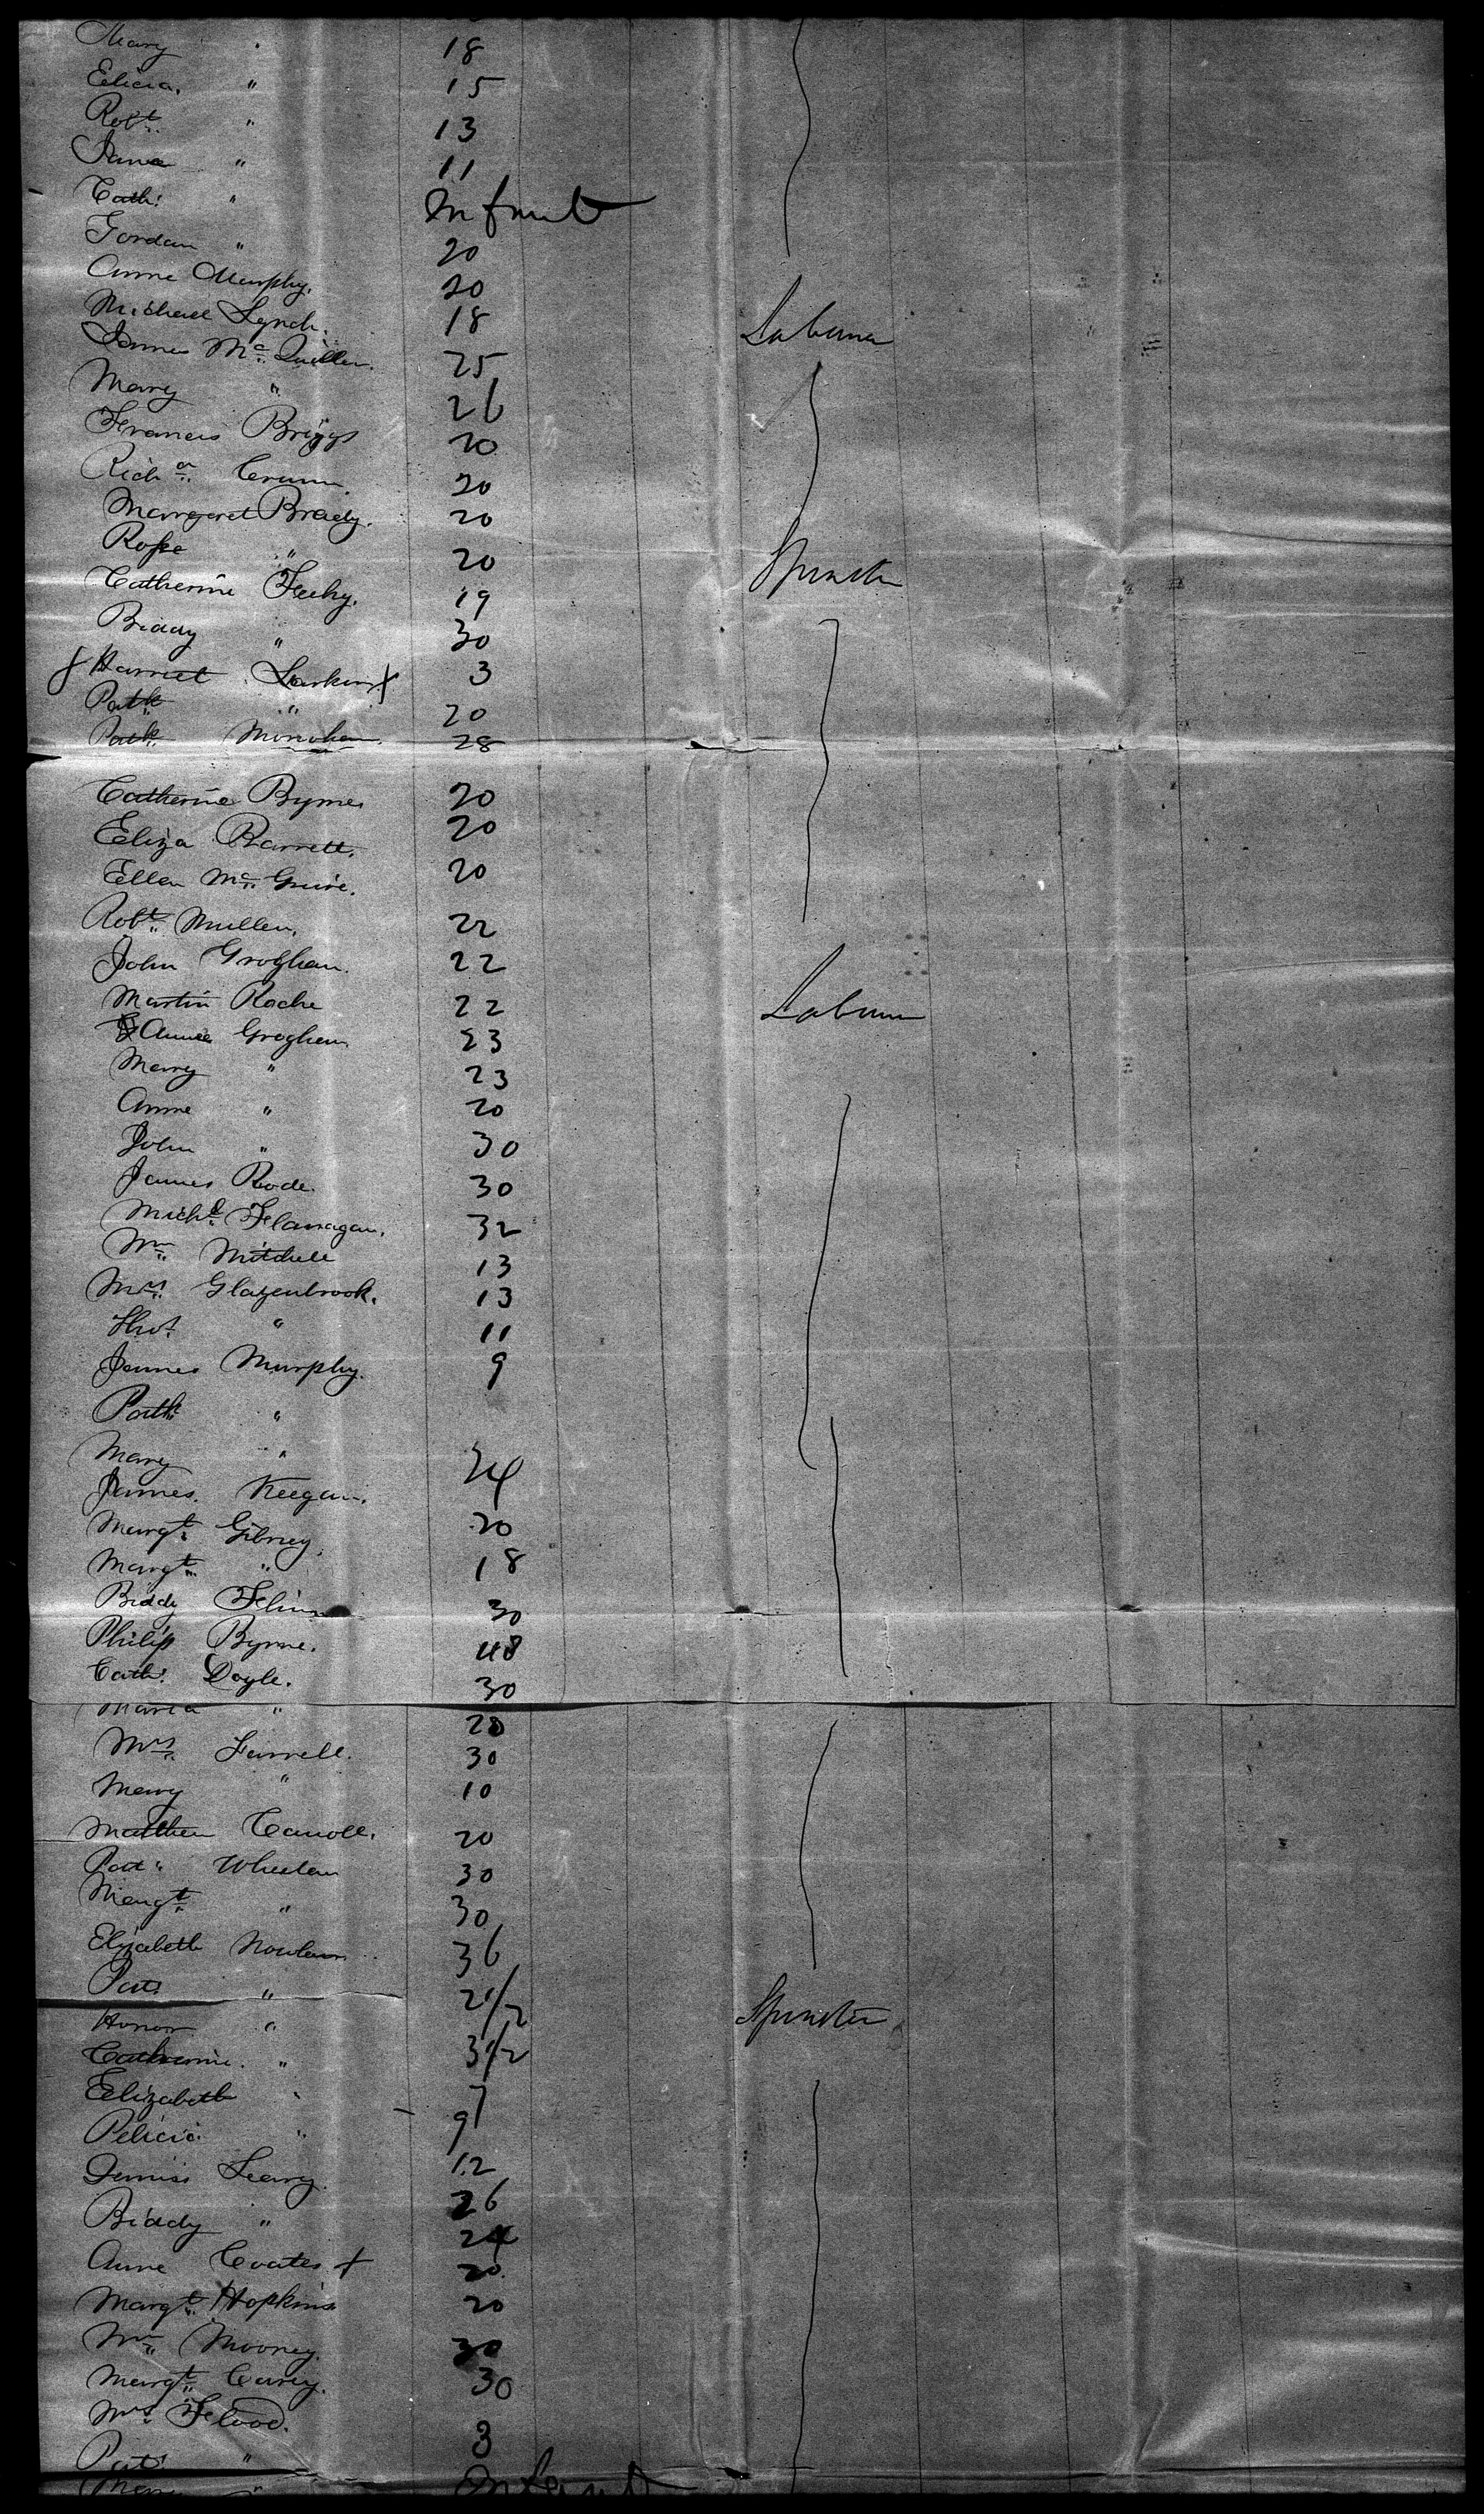 Mary " 18
Elicia, " 15
Robt " 13
Jane " 11
Cath: " Infant
Jordan " 20
Anne Murphy. 20
Michael Lynch. 18 Labourer
James Mc Quillen. 25
Mary " 26
Francis Briggs 20
Richd 20
Margaret Brady. 20
Rose " 20 Spinster
Catherine Feehy. 19
Biddy " 30
Harriet Larkin 3
Patk " 20
Patk Monohan. 28
Catherine Byrnes 20
Eliza Barrett. 20
Ellen Mc Guire. 20
Robt Mullen. 22
John Groghan. 22
Martin Roche 22 Labourer
Groghan 23
Mary " 23
Anne " 20
John " 30
James Rode. 30
Michl Flanagan. 32
Wm Mitchell 13
Mrs Glazenbrook. 13
Thos. " 11
James Murphy. 9
Patk "
Mary " 24
James. Keegan.
Margt Gibney. 20
Margt " 18
Biddy 30
Philip Byrne. 48
Cath: Doyle. 30
Maria " 20
Mrs Farrell. 30
Mary " 10
Matthew Carroll. 20
Pat: Wheelan 30
Margt " 30
Elizabeth Nowlan 36
Pat: " 2 1/2 Spinster
Honor "
Catherine. " 3 1/2
Elizabeth " 7
Felicia " 9
Dennis Leary. 12
Biddy " 26
24
Anne Coates + 20
Margt Hopkins 20
Wm Mooney. 30
Margt Carey. 30
Mrs Flood.
Pat: " 3
Mary " Infant